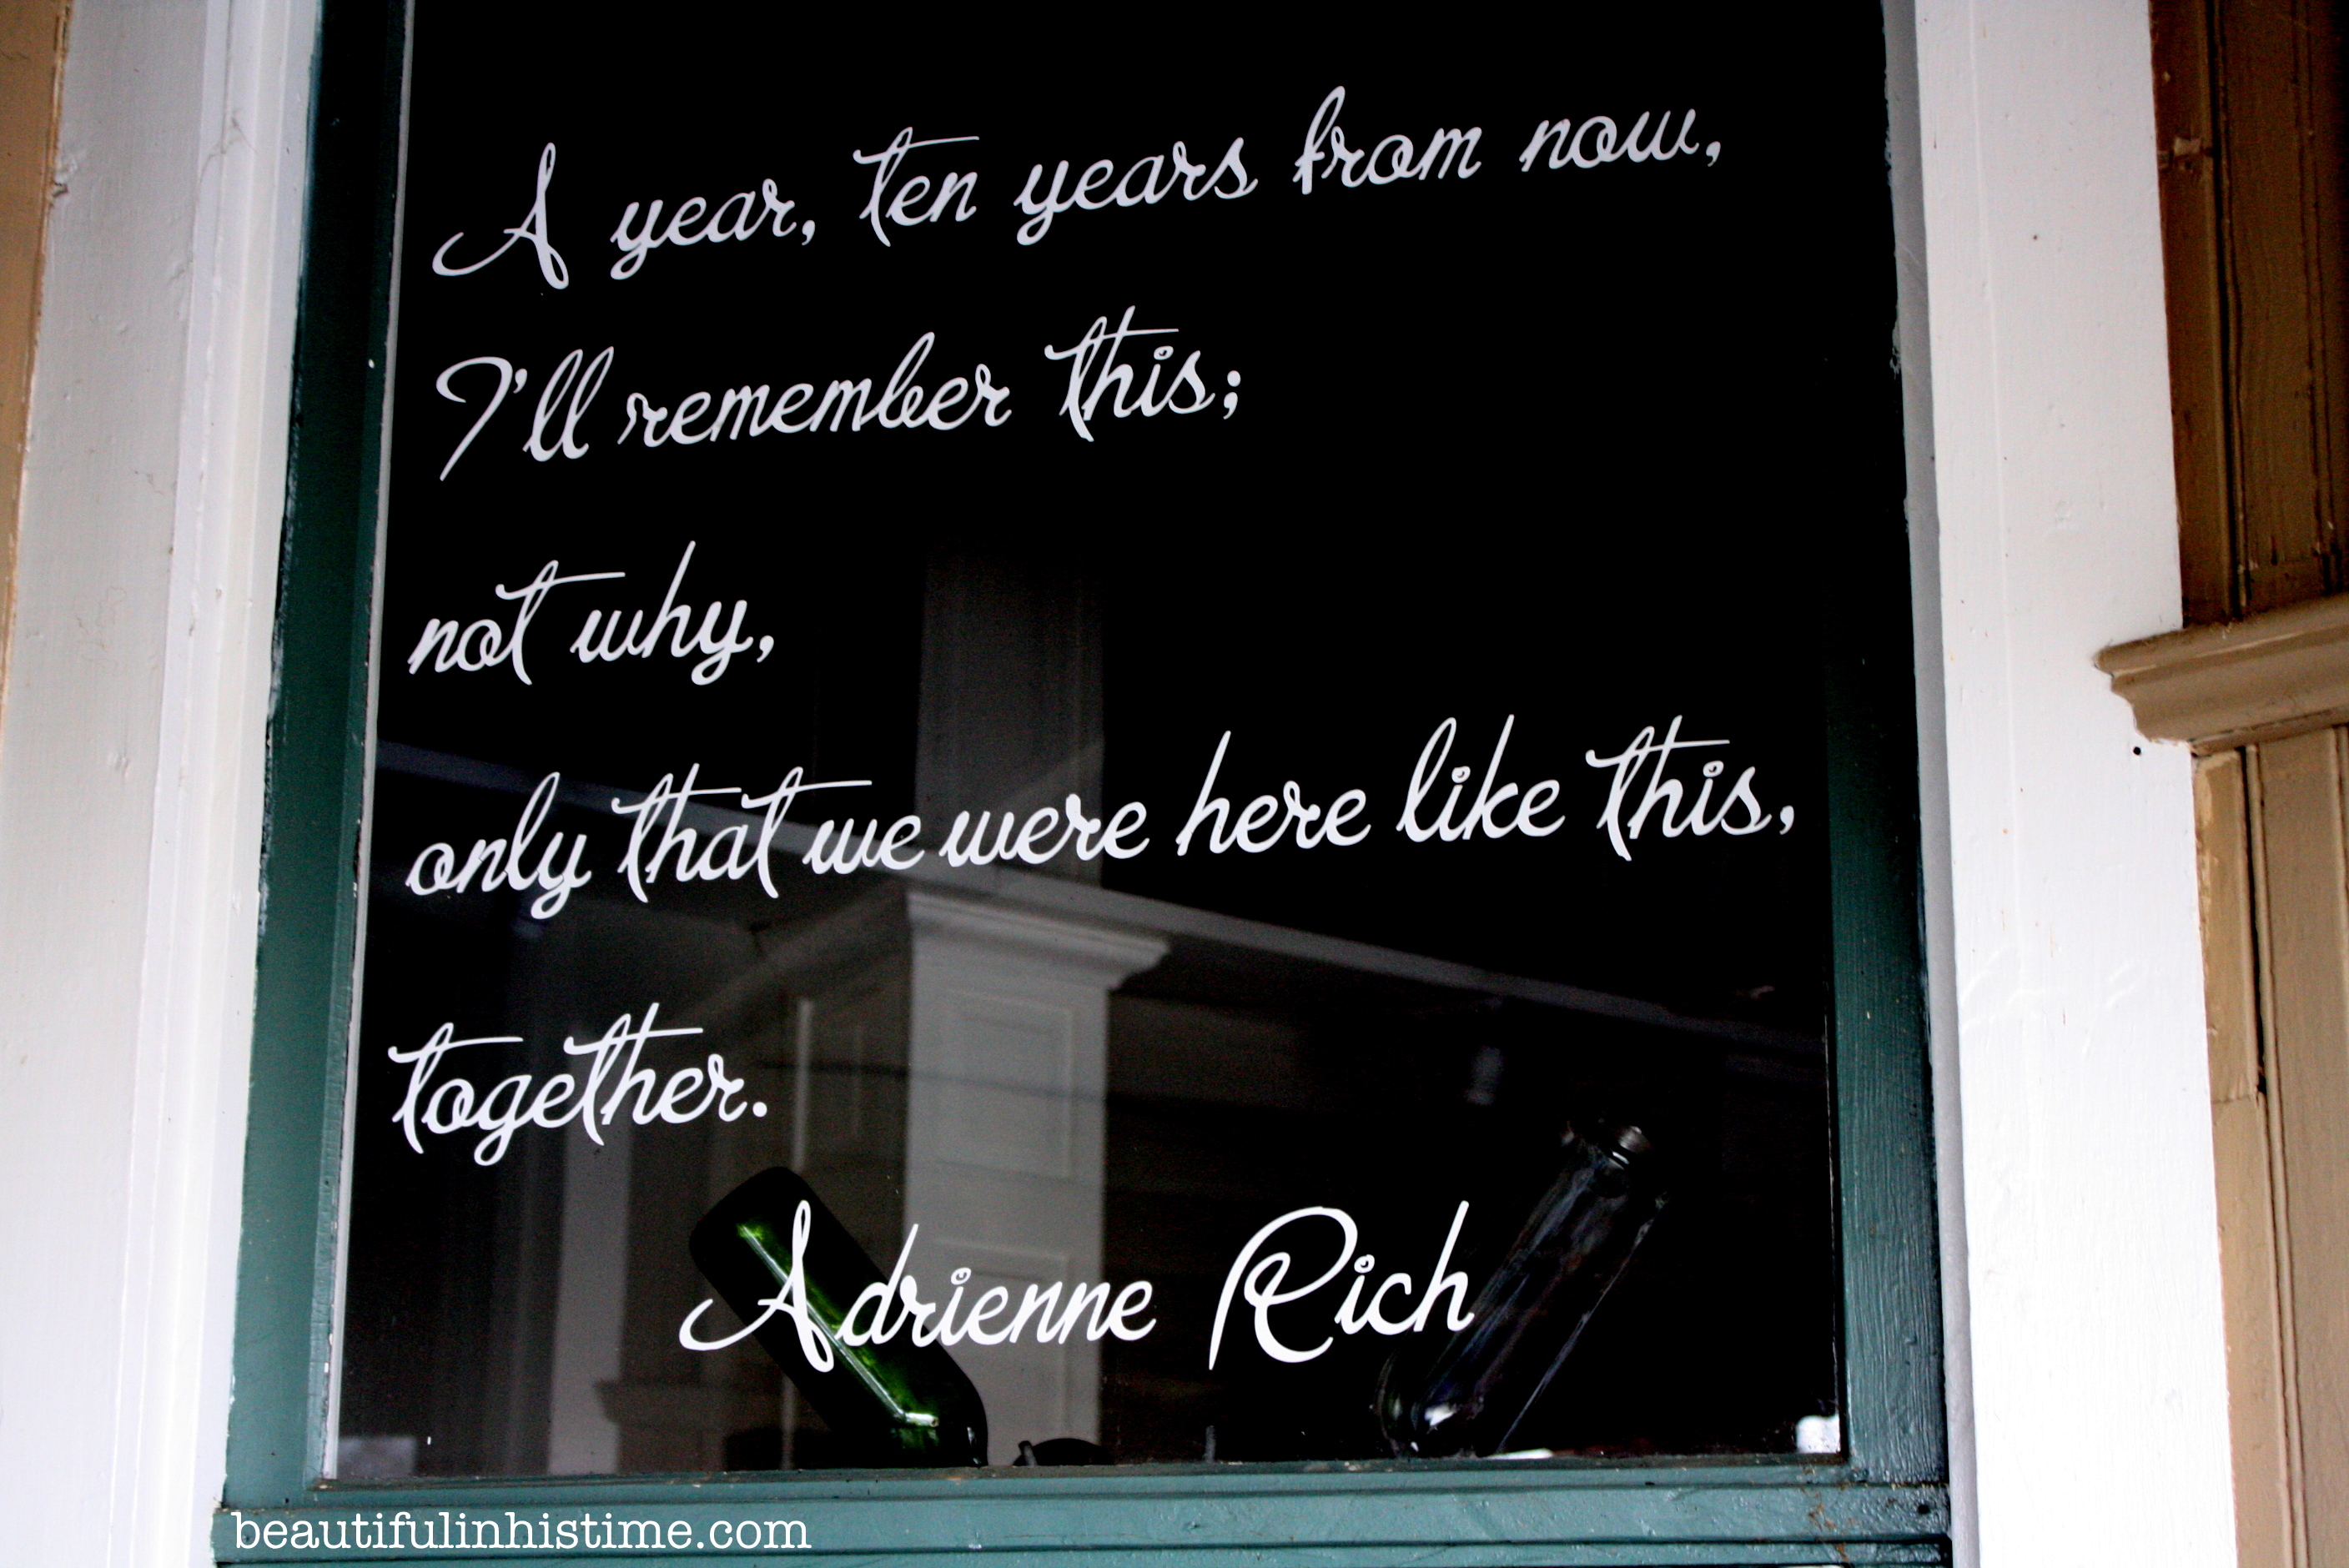 A year, ten years from now,
I'll remember this;
not why,
only that we were here like this,
together.
Adrienne Rich
beautifulinhistime.com